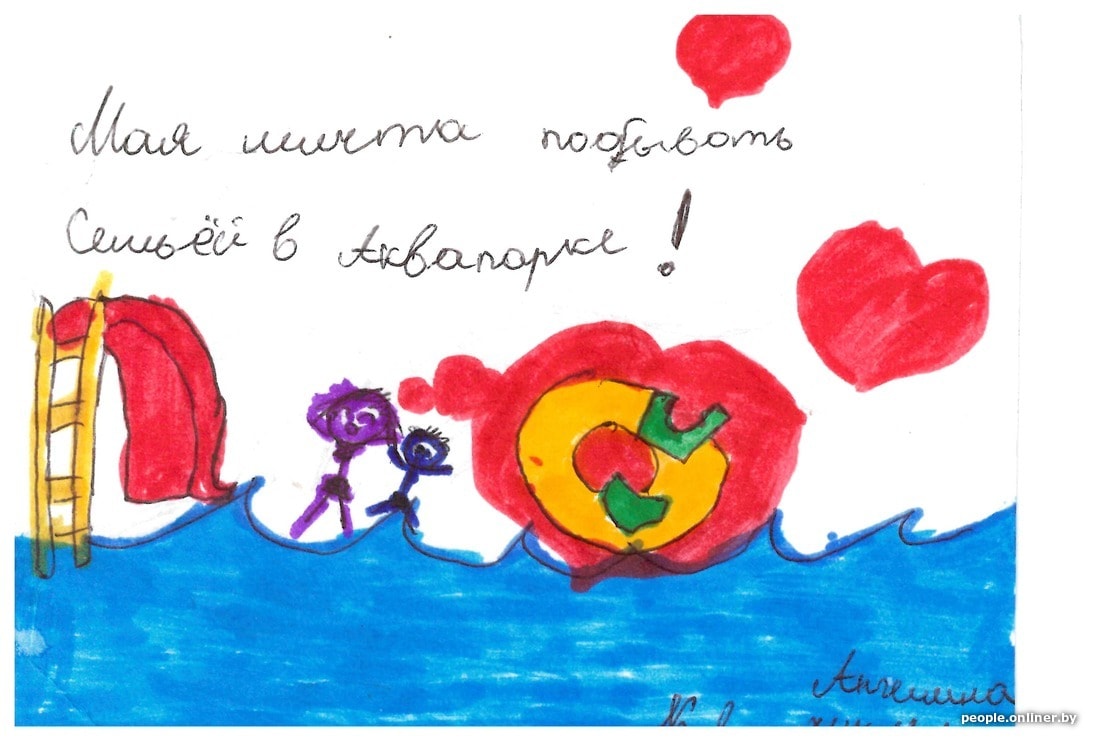 Мая мичта побывать
Семьёй в Аквапарке!
Ангелина
people.onliner.by